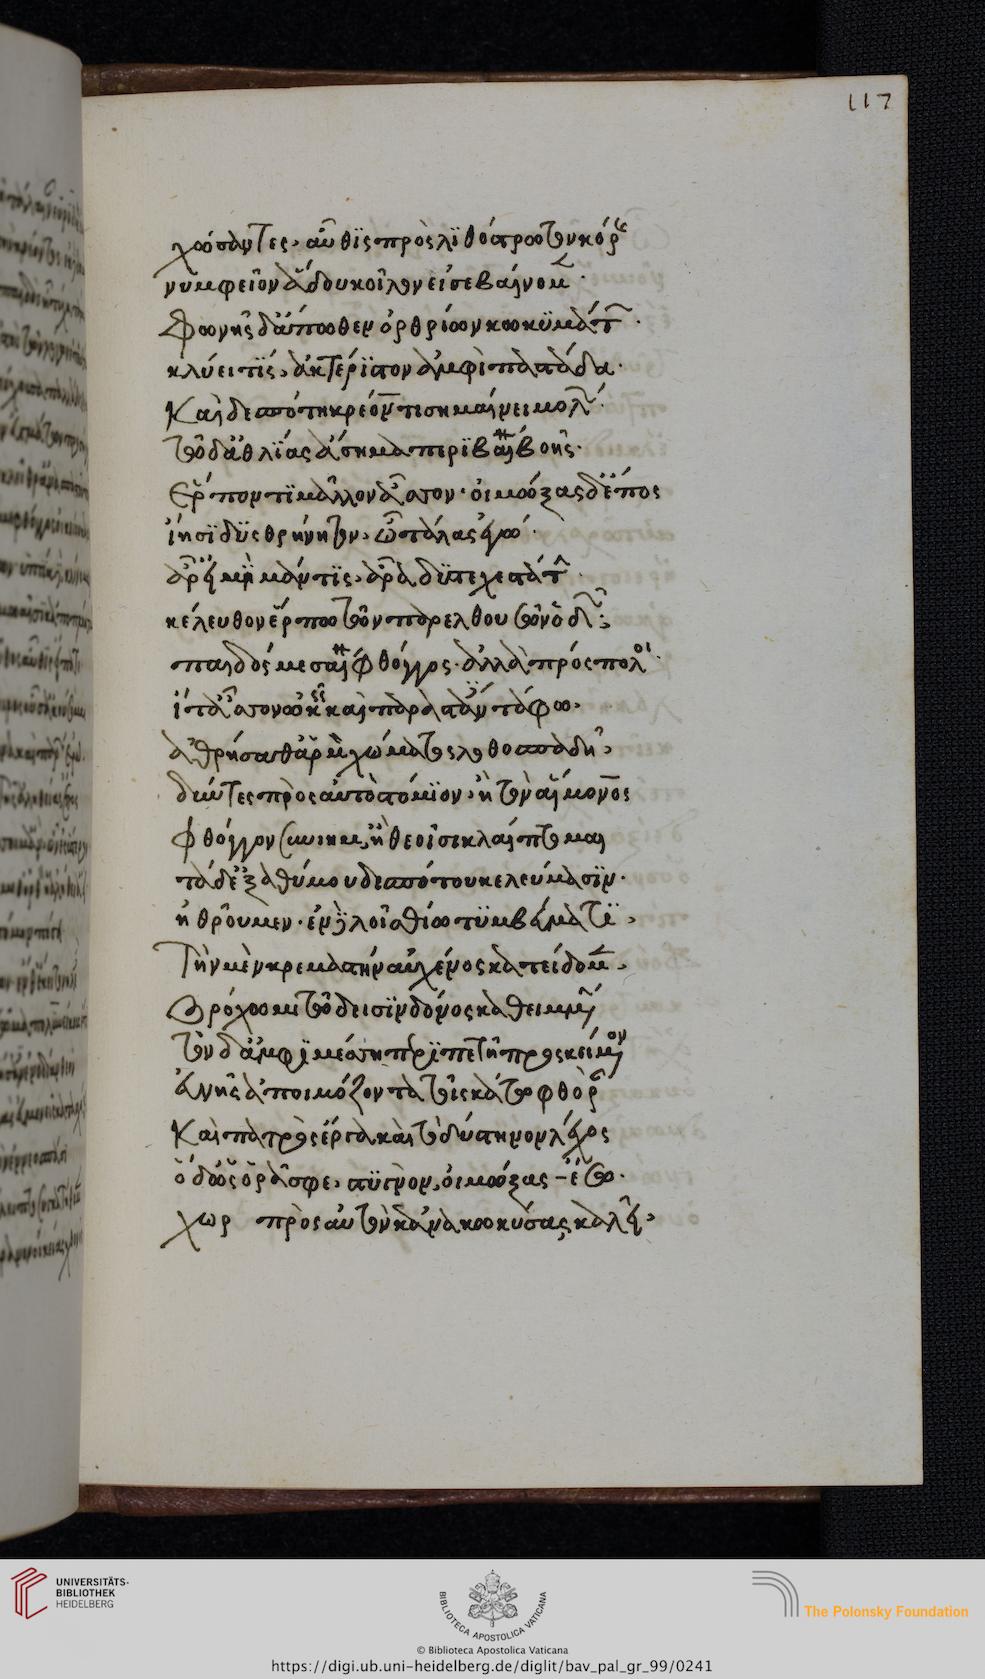 117
χώσαντες, αὖθις πρὸς λιθόστρωτον κόρης
νυμφεῖον ἅδου κοῖλον εἰσεβαίνομεν·
Φωνῆς δ' ἄπωθεν ὀρθρίων κωκυμάτων·
κλύει τίς, ἀκτέριστον ἀμφὶ παστάδα·
Καὶ δεσπότη κρέοντι σημαίνει μολών·
τῶ δ' ἀθλίας ἄσημα περιβαίνει βοῆς·
ἕρποντι μᾶλλον ἆσσον· οἰμώξας δ' ἔπος
ἵησι δυσθρήνητον, ὦ τάλας ἐγώ·
ἆρ' εἰμὶ μάντις, ἆρα δυστυχεστάτην
κέλευθον ἕρπω τῶν παρελθουσῶν ὁδῶν;
παιδός με σαίνει φθόγγος· ἀλλὰ πρόσπολοι·
ἴτ' ἆσσον ὠκεῖς καὶ παραστάντες τάφω,
ἀθρήσαθ' ἁρμὸν χώματος λιθοσπαδῆ,
δύντες πρὸς αὐτὸ στόμιον, ἢ τὸν αἵμονος
φθόγγον συνίημι, ἢ θεοῖσι κλέπτομαι
τάδ' ἐξ ἀθύμου δεσπότου κελεύμασιν·
ἠθροῦμεν· ἐν δὲ λοισθίω τυμβεύματι,
Τὴν μὲν κρεμαστὴν αὐχένος κατείδομεν,
βρόχω μιτώδει σινδόνος καθημμένην
τὸν δ' ἀμφὶ μέσση περιπετῆ προσκείμενον
εὐνῆς ἀποιμώζοντα τῆς κάτω φθορὰν
Καὶ πατρὸς ἔργα καὶ τὸ δύστηνον λέχος
ὁ δ' ὡς ὁρᾶ σφε, στυγνὸν οἰμώξας – ἔσω·
χωρ πρὸς αὐτὸν κἀνακωκύσας καλεῖ,
UNIVERSITÄTS-
BIBLIOTHEK
HEIDELBERG
BIBLIOTECA APOSTOLICA VATICANA
The Polonsky Foundation
© Biblioteca Apostolica Vaticana
https://digi.ub.uni-heidelberg.de/diglit/bav_pal_gr_99/0241